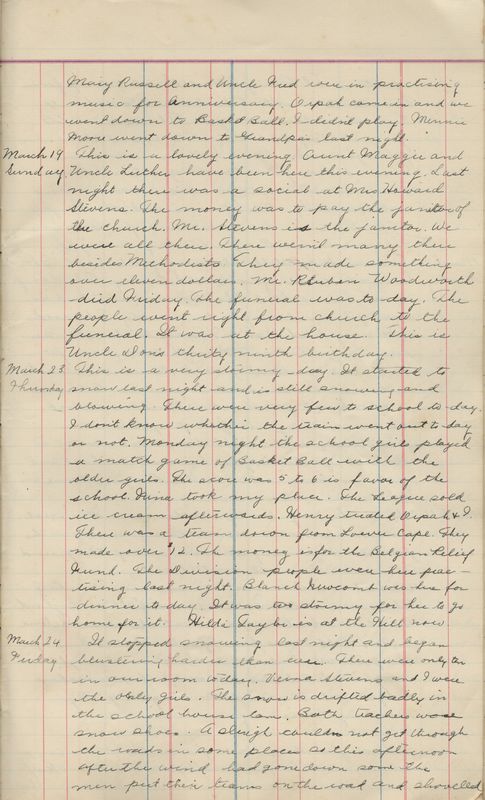 Mary Russell and Uncle Fred were in practising
music for Anniversary. Orpah came in and we
went down to Basket Ball. I didn't play. Minnie
Moore went down to Grandpa's last night.
March 19 This is a lovely evening. Aunt Maggie and
Sunday. Uncle Luther have been here this evening. Last
night there was a social at Mrs Howard
Stevens. The money was to pay the janitor of
the church. Mr. Stevens is the janitor. We
were all there. There weren't many there
besides Methodists. They made something
over eleven dollars. Mr. Reuben Woodworth
died Friday. The funeral was to-day. The
people went right from church to the
funeral. It was at the house. This is
Uncle Don's thirty ninth birthday.
March 23 This is a very stormy day. It started to
Thursday snow last night and is still snowing and
blowing. There were very few to school to-day.
I don't know whether the train went out to day
or not. Monday night the school girls played
a match game of Basket Ball with the
older girls. The score was 5 to 6 is favor of the
school. took my place. The League sold
ice cream afterwards. Henry treated Orpah & I.
There was a team down from Lower Cape. They
made over $12. The money is for the Belgian Relief
Fund. The Division people were here prac-
tising last night. Blanch Newcomb was here for
dinner to day. It was too stormy for her to go
home for it. Hilda is at the Hill now
March 24 It stopped snowing last night and began
Friday blustering harder than ever. There were only ten
in our room to day. Verna Stevens and I were
the only girls. The snow is drifted badly in
the school house lane. Both teachers wore
snow shoes. A sleigh couldn not get through
the roads in some places so this afternoon
after the wind had gone down some the
men put their teams on the road and shovelled